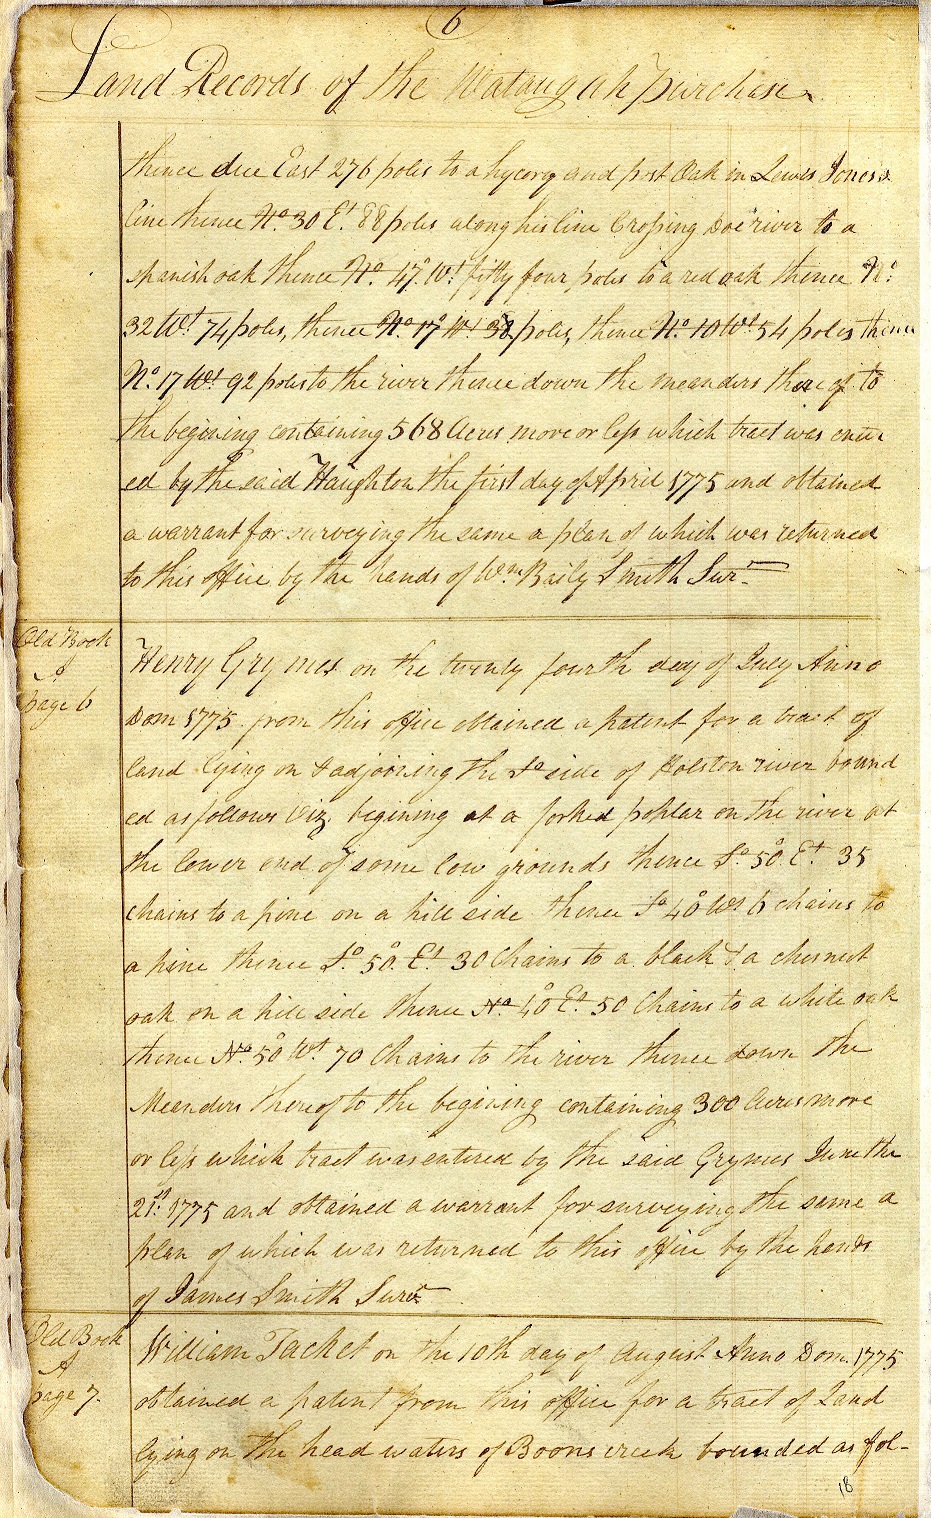 6
Land Records of the Wataugah purchase
thence due East 276 poles to a hycory and post Oak in Lewis Jones's
line thence No. 30 Et. 88 poles along his line Crossing Doe river to a
spanish oak thence No. 47° Wt fifty four poles to a red oak thence No.
32 Wt 74 poles, thence No. 17° Wt 38 poles, thence No. 10 Wt 54 poles thence
No. 17 Wt 92 poles to the river thence down the meanders there of to
the begining containing 568 Acres more or less which tract was enter
ed by the said Haughton the first day of April 1775 and obtained
a warrant for surveying the same a plan of which was returned
to this office by the hands of Wm Baily Smith Surr.
Old Book
A
page 6
Henry Grymes on the twenty fourth day of July Anno
Dom 1775 from this office obtained a patent for a tract of
land lying on & adjoining the So side of Holston river bound
ed as follows Viz. begining at a forked poplar on the river at
the lower end of some low grounds thence So. 50° Et. 35
chains to a pine on a hill side thence So 40° Wt 6 chains to
a pine thence So. 50° Et 30 Chains to a black & a chesnut
oak on a hill side thence No 40° Et 50 Chains to a white oak
thence No. 50° Wt 70 Chains to the river thence down the
Meanders thereof to the begining containing 300 Acres more
or less which tract was entered by the said Grymes June the
21st. 1775 and obtained a warrant for surveying the same a
plan of which was returned to this office by the hands
of James Smith Survr.
Old Book
A
page 7.
William Tacket on the 10th day of August Anno Dom. 1775
obtained a patent from this office for a tract of Land
lying on the head waters of Boons creek bounded as fol-
18